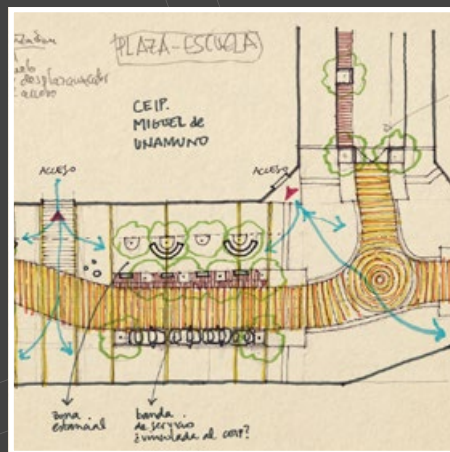 PLAZA-ESCUELA
acceso
CEIP.
MIGUEL de
UNAMUNO
ACCESO
ACCESO
zona
estancial
banda
de servicio
¿vinculada al CEIP?